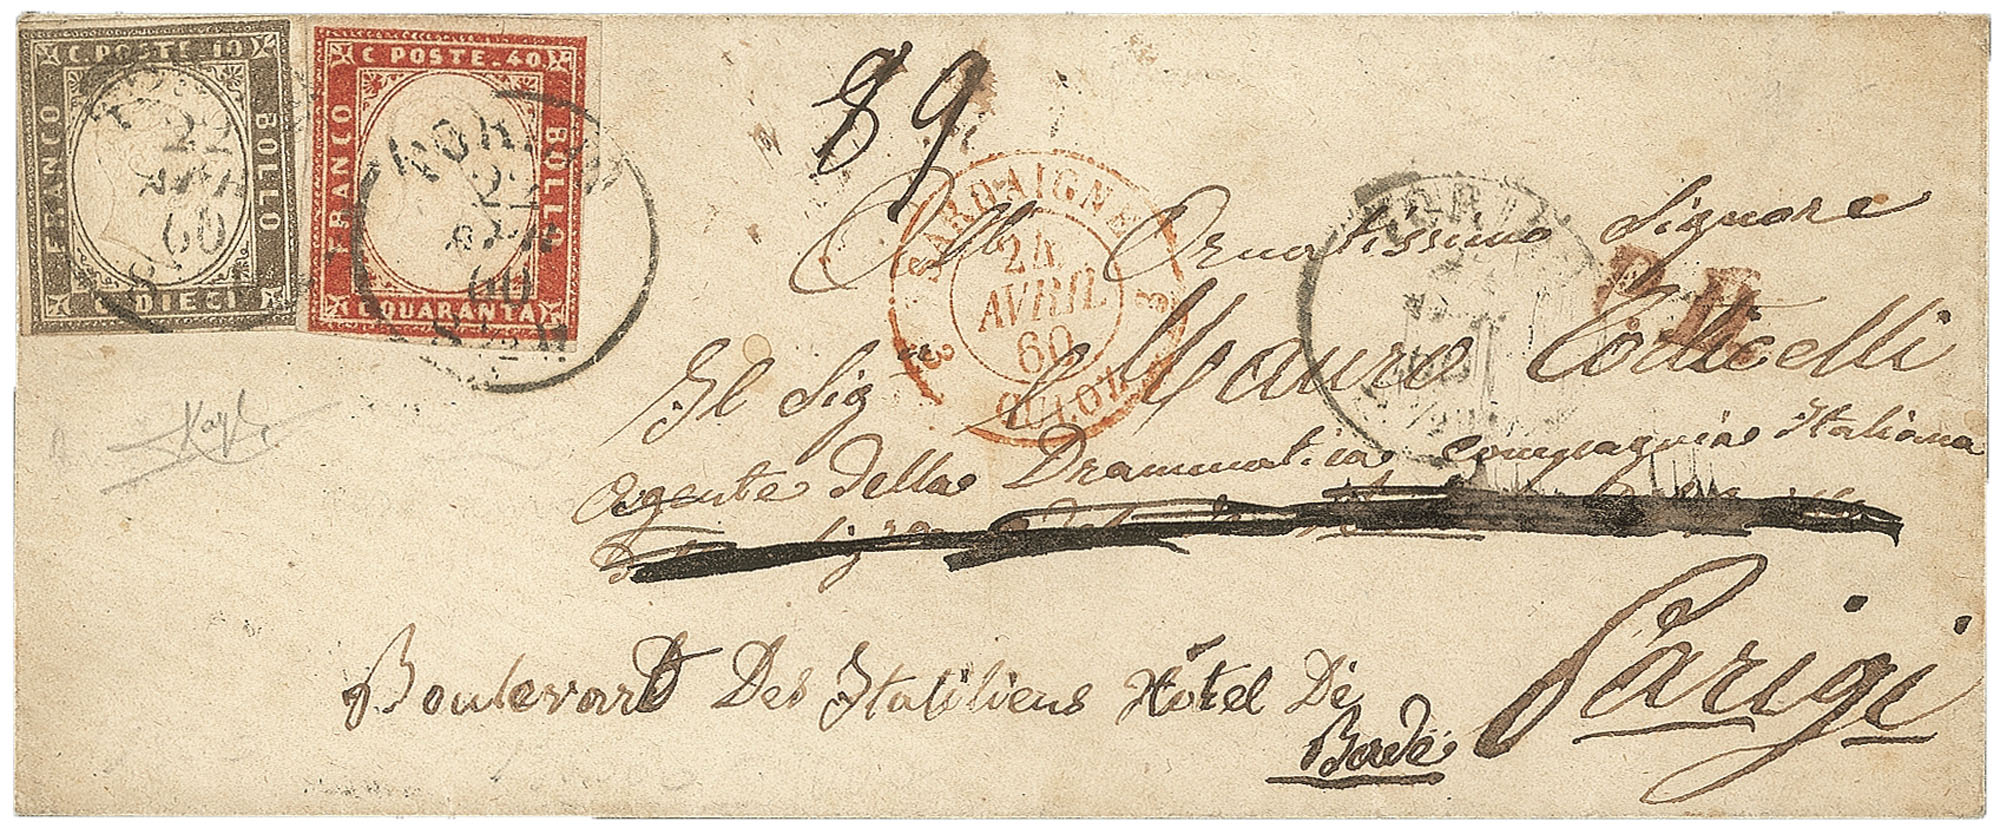 C. POSTE 10
FRANCO
BOLLO
C. DIECI
22
60
C POSTE. 40
FRANCO
BOLLO
C. QUARANTA
TORINO
60
89
SARDAIGNE
24
AVRIL
60
CULOZ
P.D.
All Ornatissimo Signore
Il Sig Mauro Corticelli
Agente della Drammatica Compagnia Italiana
Boulevart Des Italiliens Hôtel De
Bade
Parigi